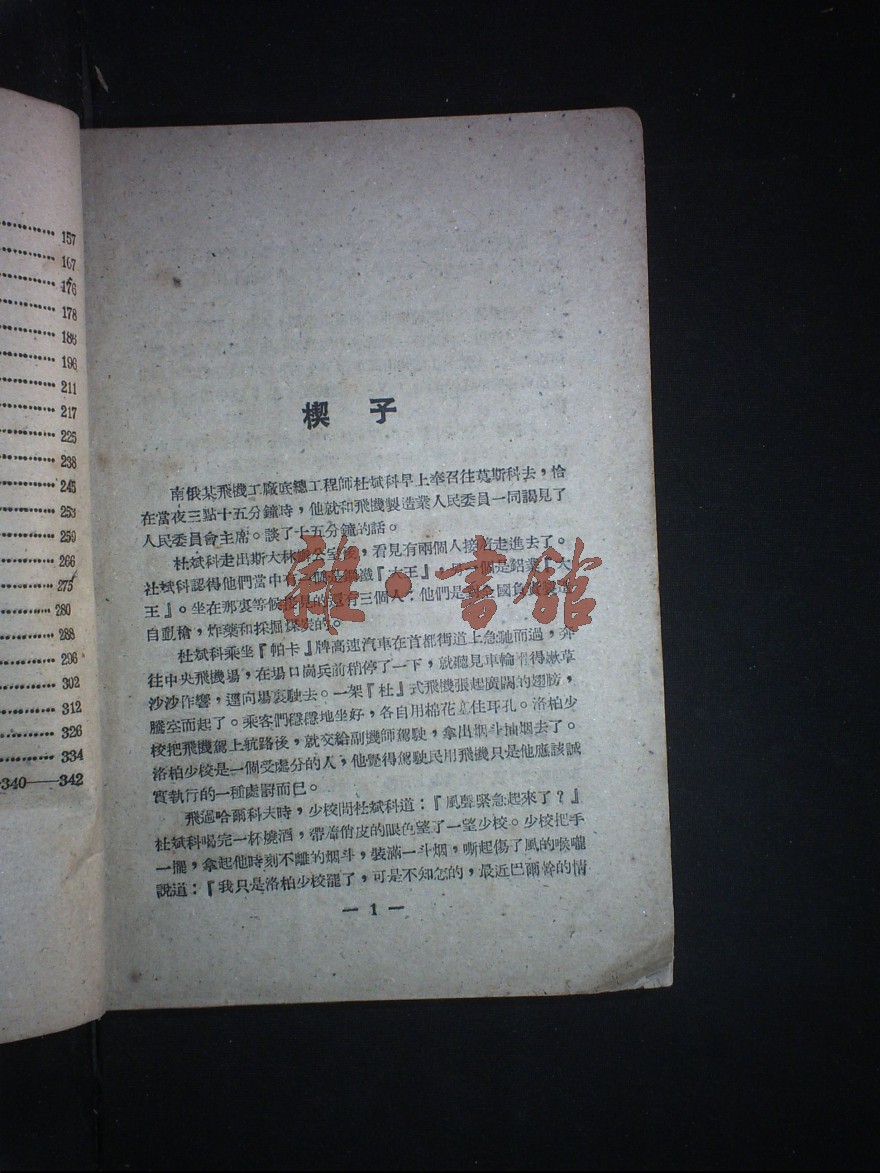 157
167
176
178
186
196
211
217
225
238
245
253
259
266
275
280
288
296
302
312
326
334
340——342
楔子
南俄某飛機工廠底總工程師杜斌科早上奉召往莫斯科去，恰
在當夜三點十五分鐘時，他就和飛機製造業人民委員一同謁見了
人民委員會主席。談了十五分鐘的話。
杜斌科走出斯大林辦公室後，看見有兩個人接著走進去了。
杜斌科認得他們當中有一個是鋼鐵『大王』，另一個是鋁業『大
王』。坐在那裏等候接見的還有三個人：他們是對全國負責製造
自動槍，炸藥和採掘煤炭的。
杜斌科乘坐『帕卡』牌高速汽車在首都街道上急馳而過，奔
往中央飛機場，在場口崗兵前稍停了一下，就聽見車輪得漱草
沙沙作響，逕向場裏駛去。一架『杜』式飛機張起廣闊的翅膀，
騰空而起了。乘客們穩穩地坐好，各自用棉花住耳孔。洛柏少
校把飛機駕上航路後，就交給副機師駕駛，拿出烟斗抽烟去了。
洛柏少校是一個受處分的人，他覺得駕駛民用飛機只是他應該誠
實執行的一種處罰而已。
飛過哈爾科夫時，少校問杜斌科道：『風聲緊急起來了？』
杜斌科喝完一杯燒酒，帶着俏皮的眼色望了一望少校。少校把手
一擺，拿起他時刻不離的烟斗，裝滿一斗烟，嘶起傷了風的喉嚨
說道：『我只是洛柏少校罷了，可是不知怎的，最近巴爾幹的情
— 1 —
雜·書館